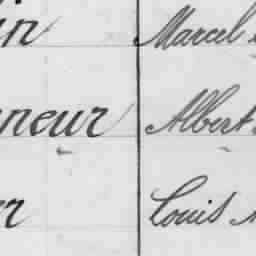 in Marcel
neur Albert
er Louis